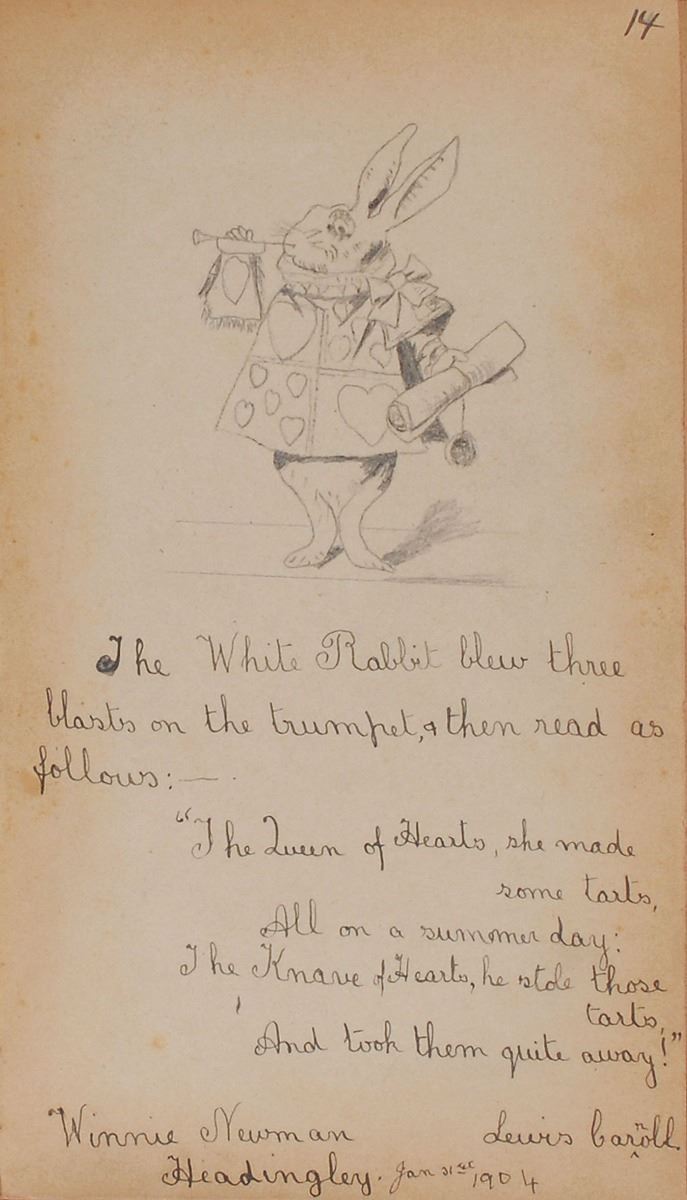 14
The White Rabbit blew three
blasts on the trumpet, & then read as
follows: —
"The Queen of Hearts, she made
some tarts,
All on a summer day:
The Knave of Hearts, he stole those
tarts,
And took them quite away!"
Winnie Newman Lewis Caroll.
Headingley. Jan 31st 1904